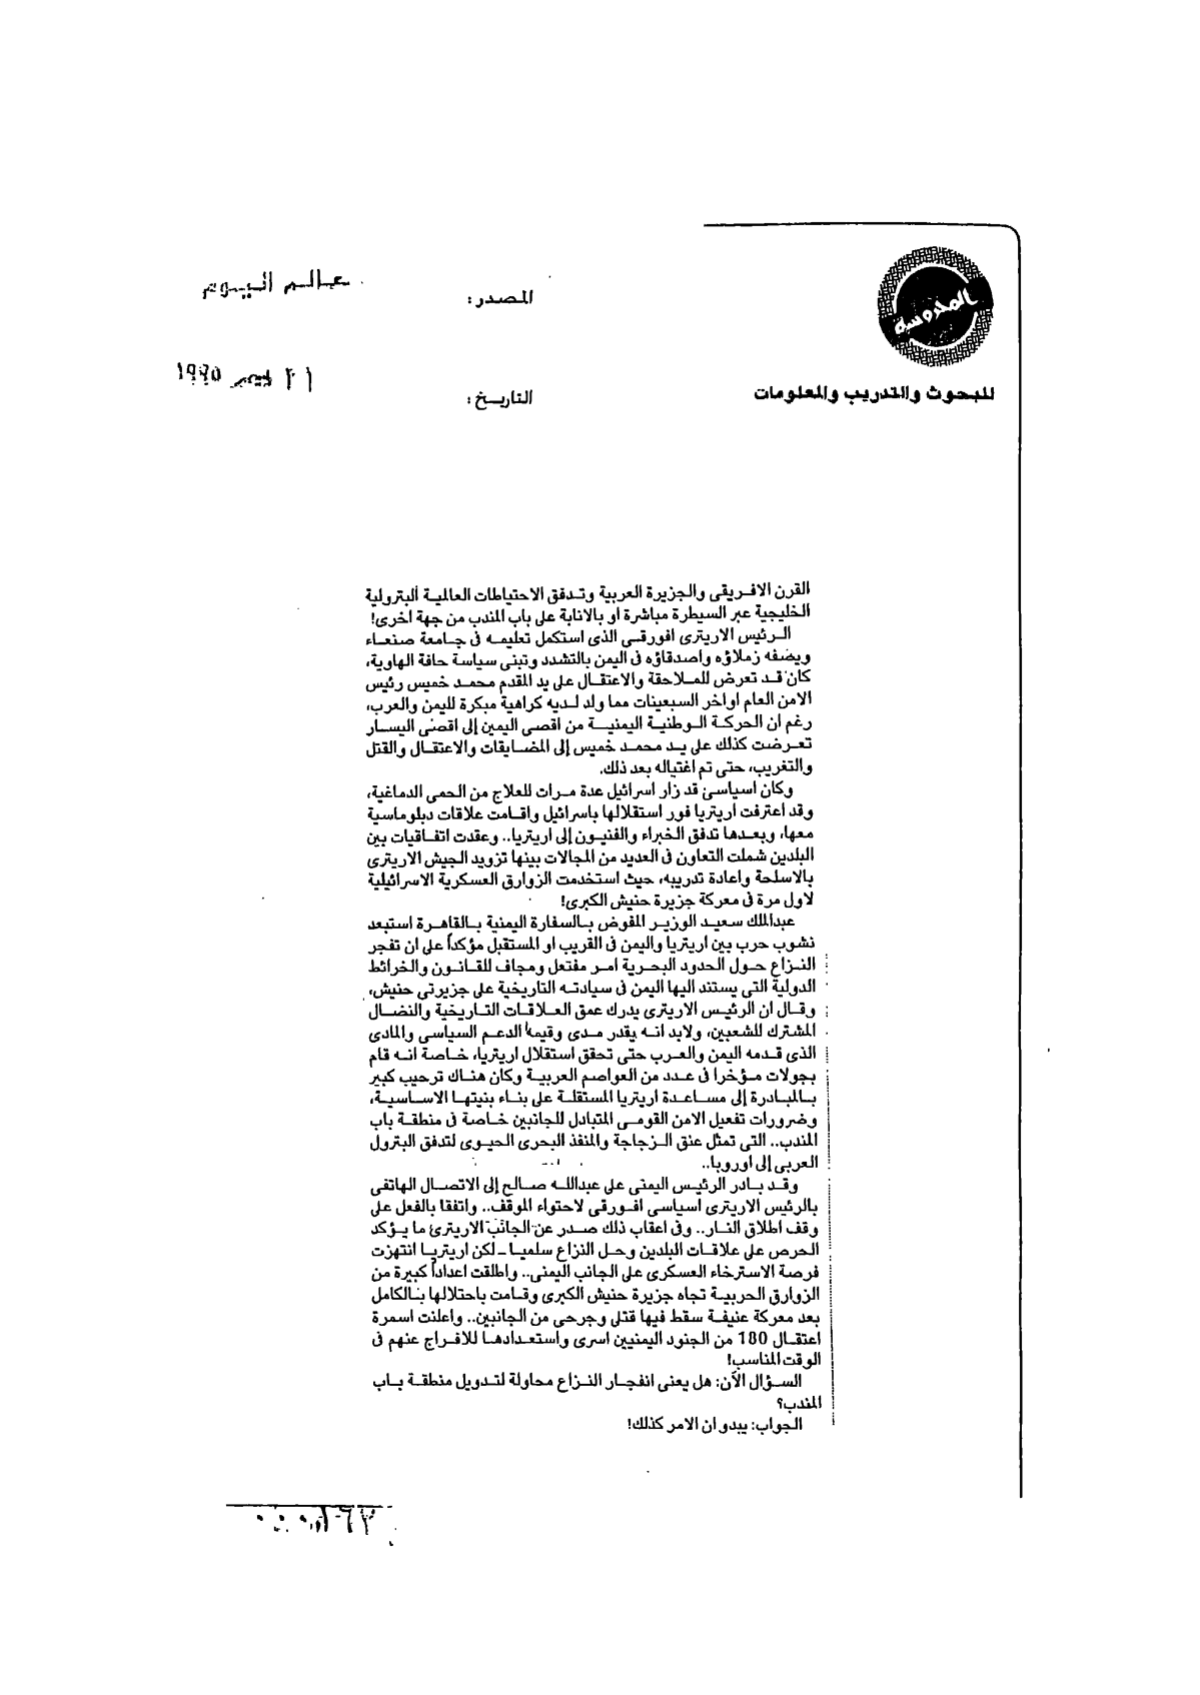 المحروسة
للبحوث والتدريب والمعلومات
المصدر: عالم اليوم
التاريخ: ٢١ ديسمبر ١٩٩٥
القرن الافريقى والجزيرة العربية وتدفق الاحتياطات العالمية البترولية
الخليجية عبر السيطرة مباشرة او بالانابة على باب المندب من جهة اخرى!
الرئيس الاريترى افورقى الذى استكمل تعليمه فى جامعة صنعاء
ويصفه زملاؤه واصدقاؤه فى اليمن بالتشدد وتبنى سياسة حافة الهاوية،
كان قد تعرض للملاحقة والاعتقال على يد المقدم محمد خميس رئيس
الامن العام اواخر السبعينات مما ولد لديه كراهية مبكرة لليمن والعرب،
رغم ان الحركة الوطنية اليمنية من اقصى اليمين إلى اقصى اليسار
تعرضت كذلك على يد محمد خميس إلى المضايقات والاعتقال والقتل
والتغريب، حتى تم اغتياله بعد ذلك.
وكان اسياسى قد زار اسرائيل عدة مرات للعلاج من الحمى الدماغية،
وقد اعترفت اريتريا فور استقلالها باسرائيل واقامت علاقات دبلوماسية
معها، وبعدها تدفق الخبراء والفنيون إلى اريتريا.. وعقدت اتفاقيات بين
البلدين شملت التعاون فى العديد من المجالات بينها تزويد الجيش الاريترى
بالاسلحة واعادة تدريبه، حيث استخدمت الزوارق العسكرية الاسرائيلية
لاول مرة فى معركة جزيرة حنيش الكبرى!
عبدالملك سعيد الوزير المفوض بالسفارة اليمنية بالقاهرة استبعد
نشوب حرب بين اريتريا واليمن فى القريب او المستقبل مؤكداً على ان تفجر
النزاع حول الحدود البحرية امر مفتعل ومجاف للقانون والخرائط
الدولية التى يستند اليها اليمن فى سيادته التاريخية على جزيرتى حنيش،
وقال ان الرئيس الاريترى يدرك عمق العلاقات التاريخية والنضال
المشترك للشعبين، ولابد انه يقدر مدى وقيمة الدعم السياسى والمادى
الذى قدمه اليمن والعرب حتى تحقق استقلال اريتريا، خاصة انه قام
بجولات مؤخرا فى عدد من العواصم العربية وكان هناك ترحيب كبير
بالمبادرة إلى مساعدة اريتريا المستقلة على بناء بنيتها الاساسية،
وضرورات تفعيل الامن القومى المتبادل للجانبين خاصة فى منطقة باب
المندب.. التى تمثل عنق الزجاجة والمنفذ البحرى الحيوى لتدفق البترول
العربى إلى اوروبا..
وقد بادر الرئيس اليمنى على عبدالله صالح إلى الاتصال الهاتفى
بالرئيس الاريترى اسياسى افورقى لاحتواء الموقف.. واتفقا بالفعل على
وقف اطلاق النار.. وفى اعقاب ذلك صدر عن الجانب الاريترى ما يؤكد
الحرص على علاقات البلدين وحل النزاع سلميا ـ لكن اريتريا انتهزت
فرصة الاسترخاء العسكرى على الجانب اليمنى.. واطلقت اعداداً كبيرة من
الزوارق الحربية تجاه جزيرة حنيش الكبرى وقامت باحتلالها بالكامل
بعد معركة عنيفة سقط فيها قتلى وجرحى من الجانبين.. واعلنت اسمرة
اعتقال 180 من الجنود اليمنيين اسرى واستعدادها للافراج عنهم فى
الوقت المناسب!
السؤال الآن: هل يعنى انفجار النزاع محاولة لتدويل منطقة باب
المندب؟
الجواب: يبدو ان الامر كذلك!